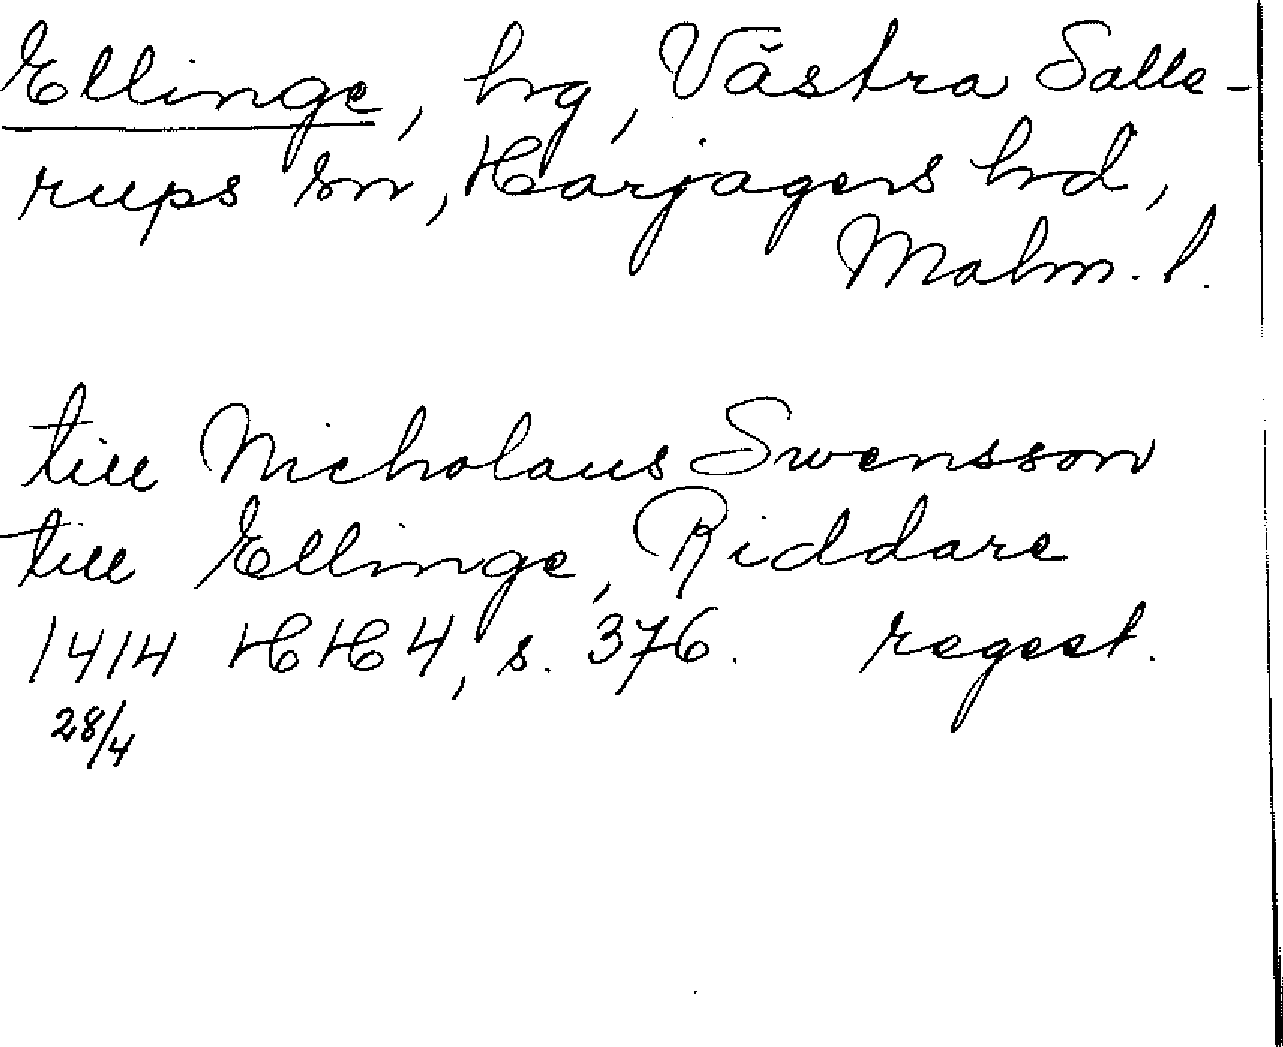 Ellinge, hg, Västra Salle-
rups sn, Harjagers hd,
Malm. l.
till Nicholaus Swensson
till Ellinge, Riddare
1414 HH 4, s. 376. regest.
28/4